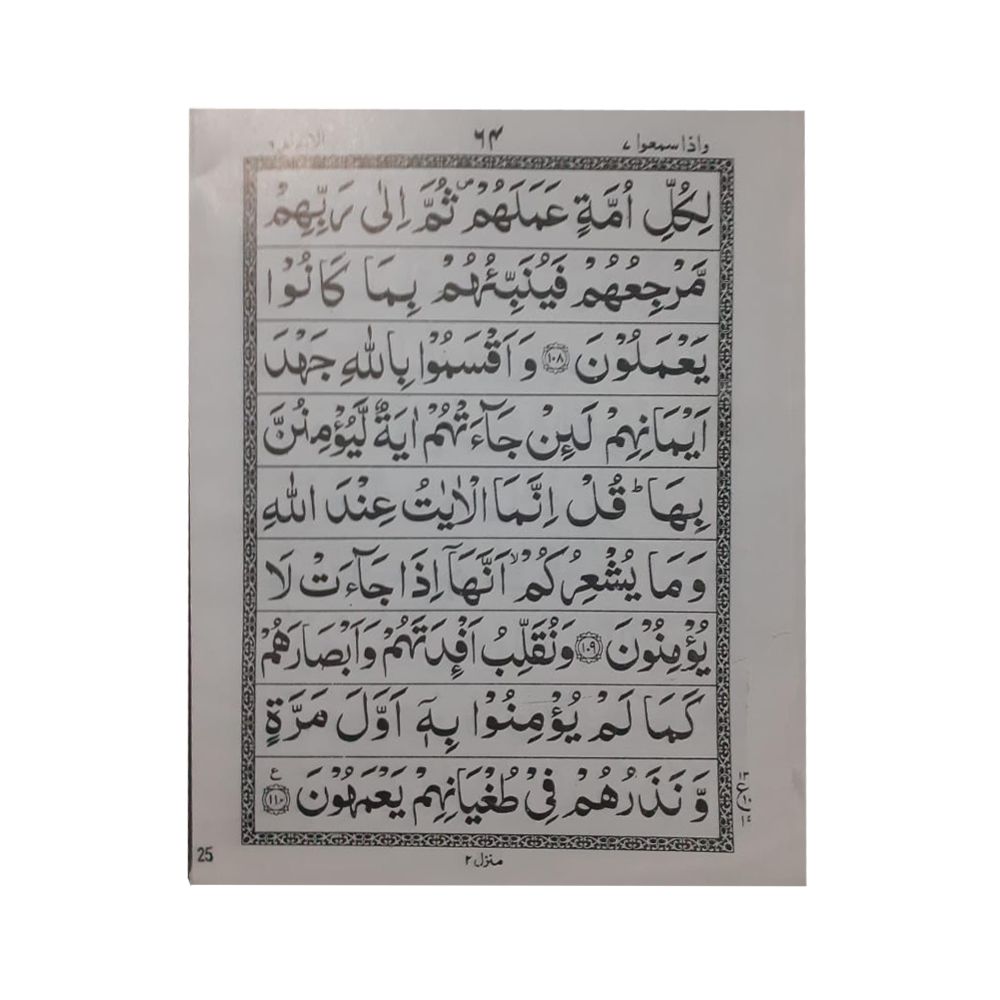 واذا سمعوا ٧ ٦٤ الانعام ٦
لِكُلِّ اُمَّةٍ عَمَلَهُمْ ۪ ثُمَّ اِلٰى رَبِّهِمْ
مَّرْجِعُهُمْ فَيُنَبِّئُهُمْ بِمَا كَانُوْا
يَعْمَلُوْنَ ﴿۱۰۸﴾ وَاَقْسَمُوْا بِاللّٰهِ جَهْدَ
اَيْمَانِهِمْ لَىِٕنْ جَآءَتْهُمْ اٰيَةٌ لَّيُؤْمِنُنَّ
بِهَا ؕ قُلْ اِنَّمَا الْاٰيٰتُ عِنْدَ اللّٰهِ
وَمَا يُشْعِرُكُمْ ۙ اَنَّهَاۤ اِذَا جَآءَتْ لَا
يُؤْمِنُوْنَ ﴿۱۰۹﴾ وَنُقَلِّبُ اَفْـِٕدَتَهُمْ وَاَبْصَارَهُمْ
كَمَا لَمْ يُؤْمِنُوْا بِهٖۤ اَوَّلَ مَرَّةٍ
وَّنَذَرُهُمْ فِيْ طُغْيَانِهِمْ يَعْمَهُوْنَ ﴿۱۱۰﴾ ع
منزل ۲
25